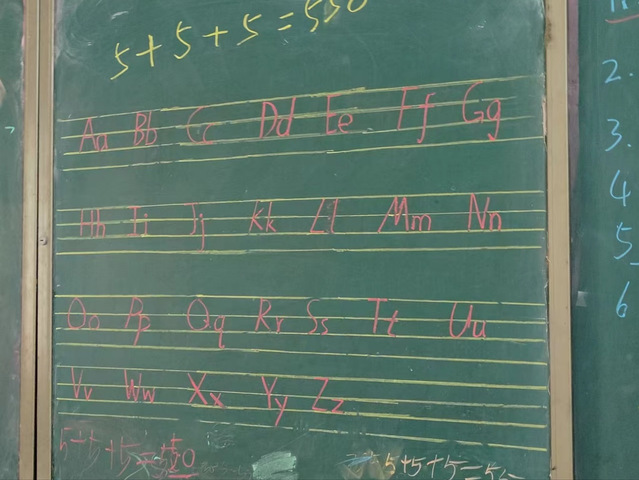 5+5+5=550
Aa Bb Cc Dd Ee Ff Gg
Hh Ii Jj Kk Ll Mm Nn
Oo Pp Qq Rr Ss Tt Uu
Vv Ww Xx Yy Zz
2.
3.
4
5
6